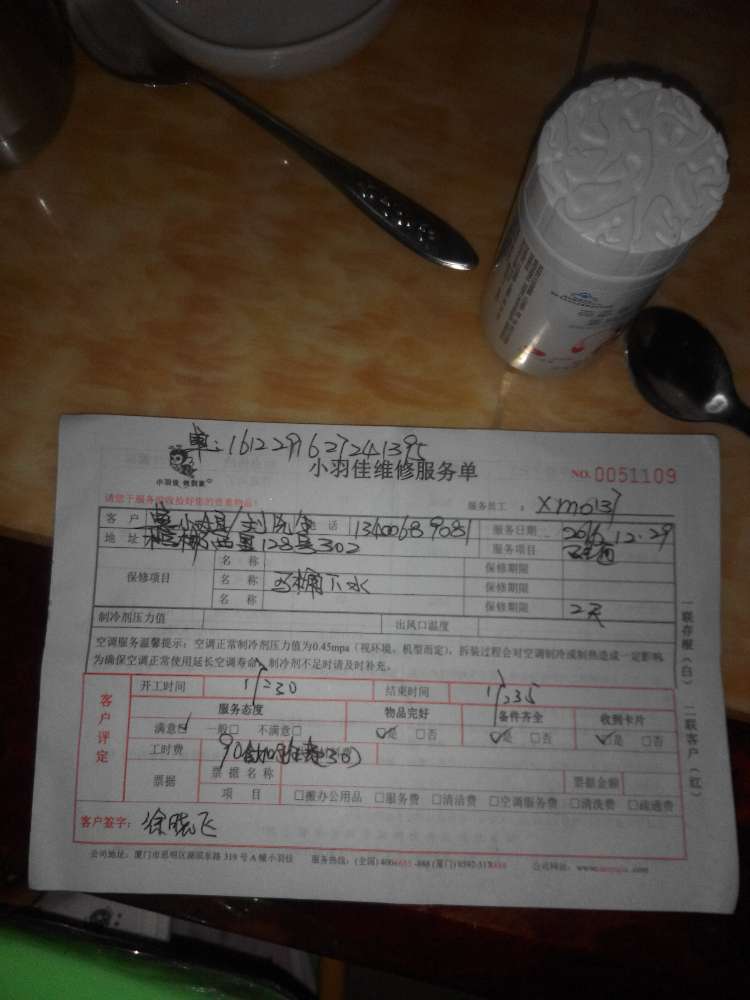 单:1612291627241395
小羽佳 做到家
小羽佳维修服务单 NO. 0051109
请您于服务前收拾好您的贵重物品! 服务员工: xm0137
客户 电话 13400689081 服务日期 2016.12.29
地址 西里128号302 服务项目
名称 保修期限
保修项目 名称 马桶下水 保修期限
名称 保修期限 2天
制冷剂压力值 出风口温度
空调服务温馨提示:空调正常制冷剂压力值为0.45mpa(视环境、机型而定),拆装过程会对空调制冷或制热造成一定影响
为确保空调正常使用延长空调寿命,制冷剂不足时请及时补充。
开工时间 1/230 结束时间 1/235
客户评定
服务态度 物品完好 备件齐全 收到卡片
满意☑ 一般□ 不满意□ ☑是 □否 ☑是 □否 ☑是 □否
工时费 90
票据 票据名称 票据金额
项目 □搬办公用品 □服务费 □清洁费 □空调服务费 □清洗费 □疏通费
客户签字: 徐晓飞
公司地址:厦门市思明区湖滨东路 319 号 A 幢小羽佳 服务热线:(全国) 400 公司网址:
一联存根(白) 二联客户(红)